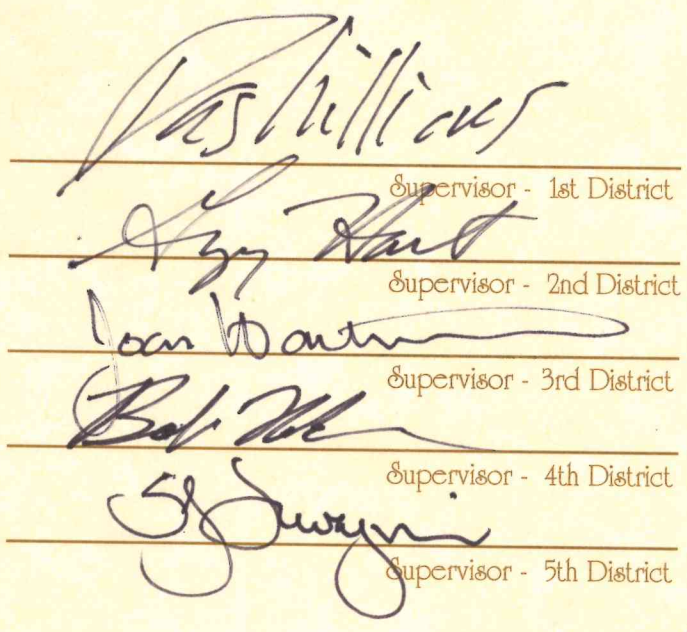 Das Williams
Supervisor - 1st District
Gregg Hart
Supervisor - 2nd District
Joan Hartmann
Supervisor - 3rd District
Bob
Supervisor - 4th District
Supervisor - 5th District